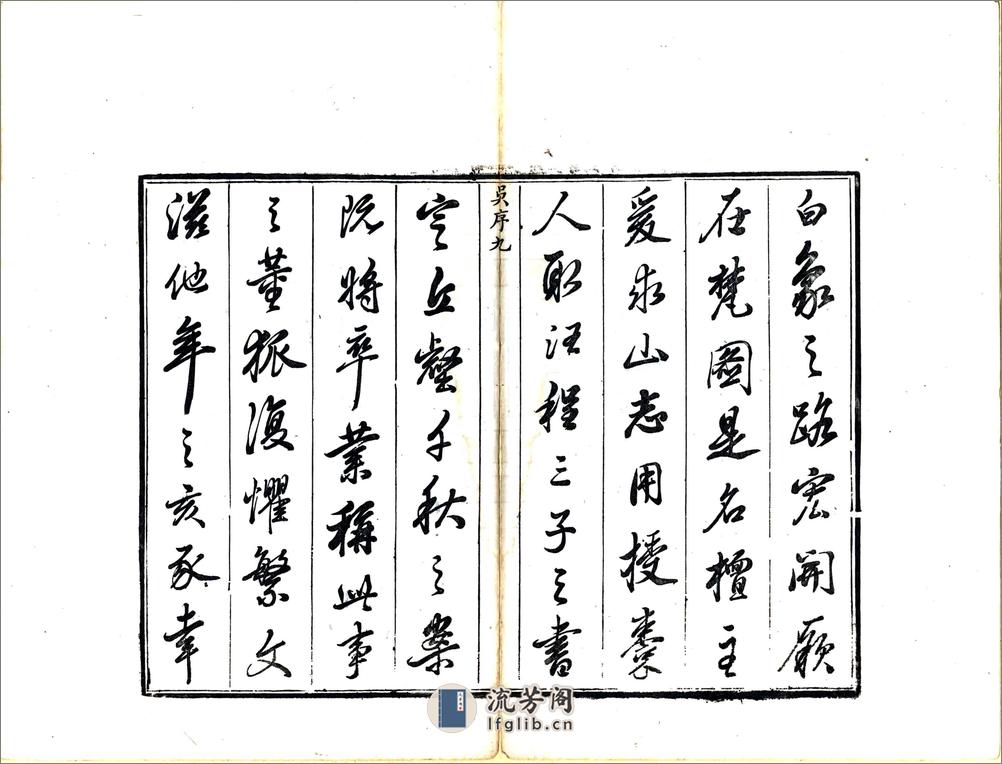 白象之路宏開願
在梵圖是名檀主
爰求山志用授棗
人取汪程三子之書
吳序九
定丘壑千秋之案
既將卒業稱此事
之董狐復懼繁文
滋他年之亥豕幸
流芳阁
lfglib.cn